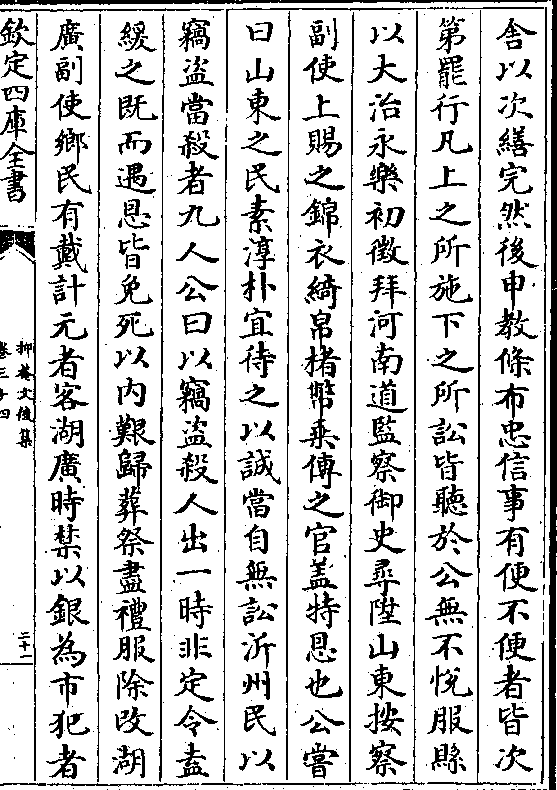 舎以次繕完然後申教條布忠信事有便不便者皆次
第罷行凡上之所施下之所訟皆聽於公無不悅服縣
以大治永樂初徴拜河南道監察御史尋陞山東按察
副使上賜之錦衣綺帛楮幣乗傳之官盖特恩也公嘗
曰山東之民素淳朴宜待之以誠當自無訟沂州民以
竊盗當殺者九人公曰以竊盗殺人出一時非定令盍
緩之既而遇恩皆免死以内艱歸葬祭盡禮服除改湖
廣副使鄉民有戴計元者客湖廣時禁以銀為市犯者
欽定四庫全書
抑菴文後集
卷三十四
二十一